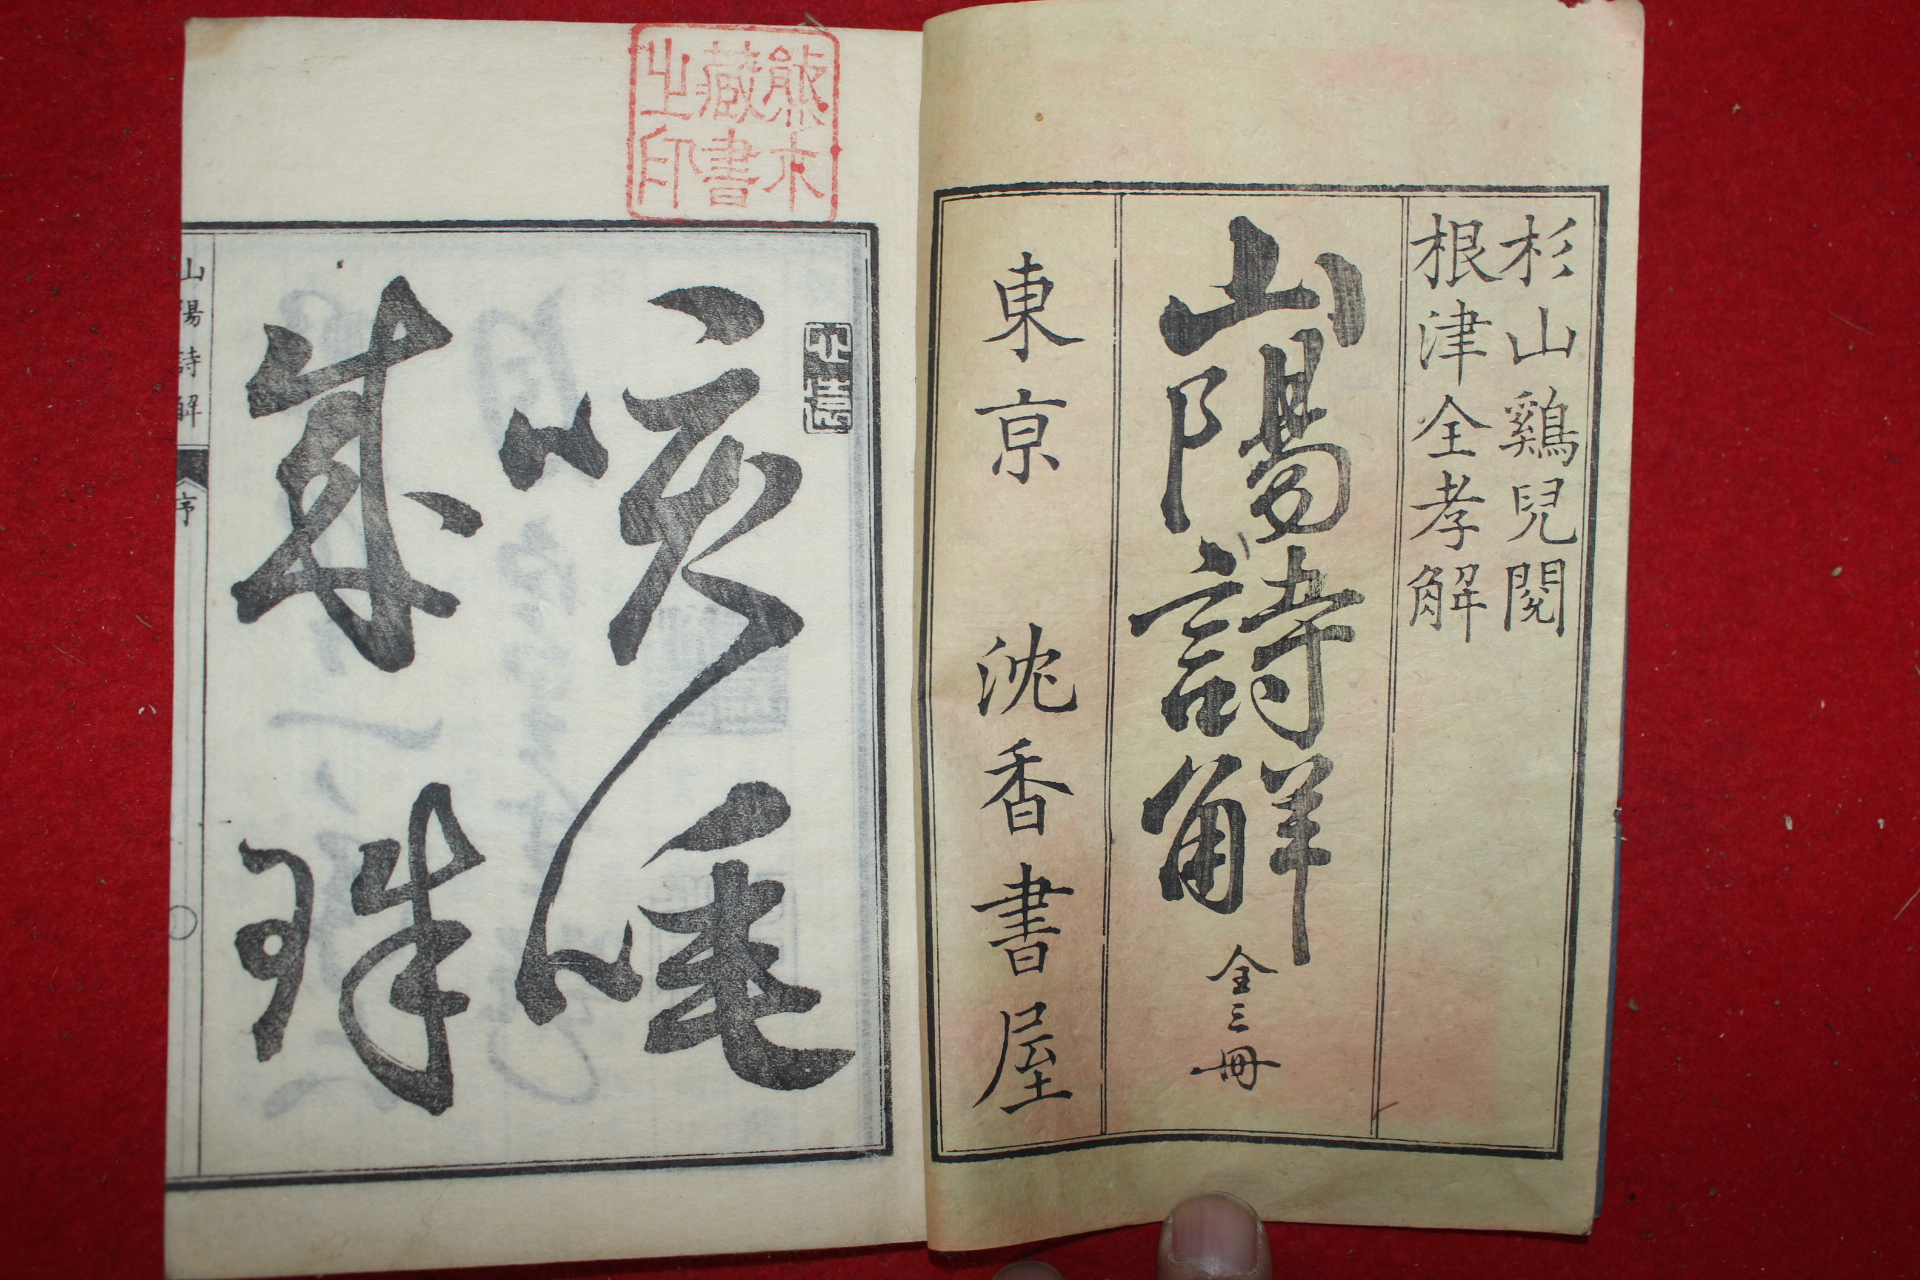 杉山鷄兒閱
根津全孝解
山陽詩解
全三冊
東京 沈香書屋
熊木
藏書
之印
咳唾
成珠
山陽詩解 序